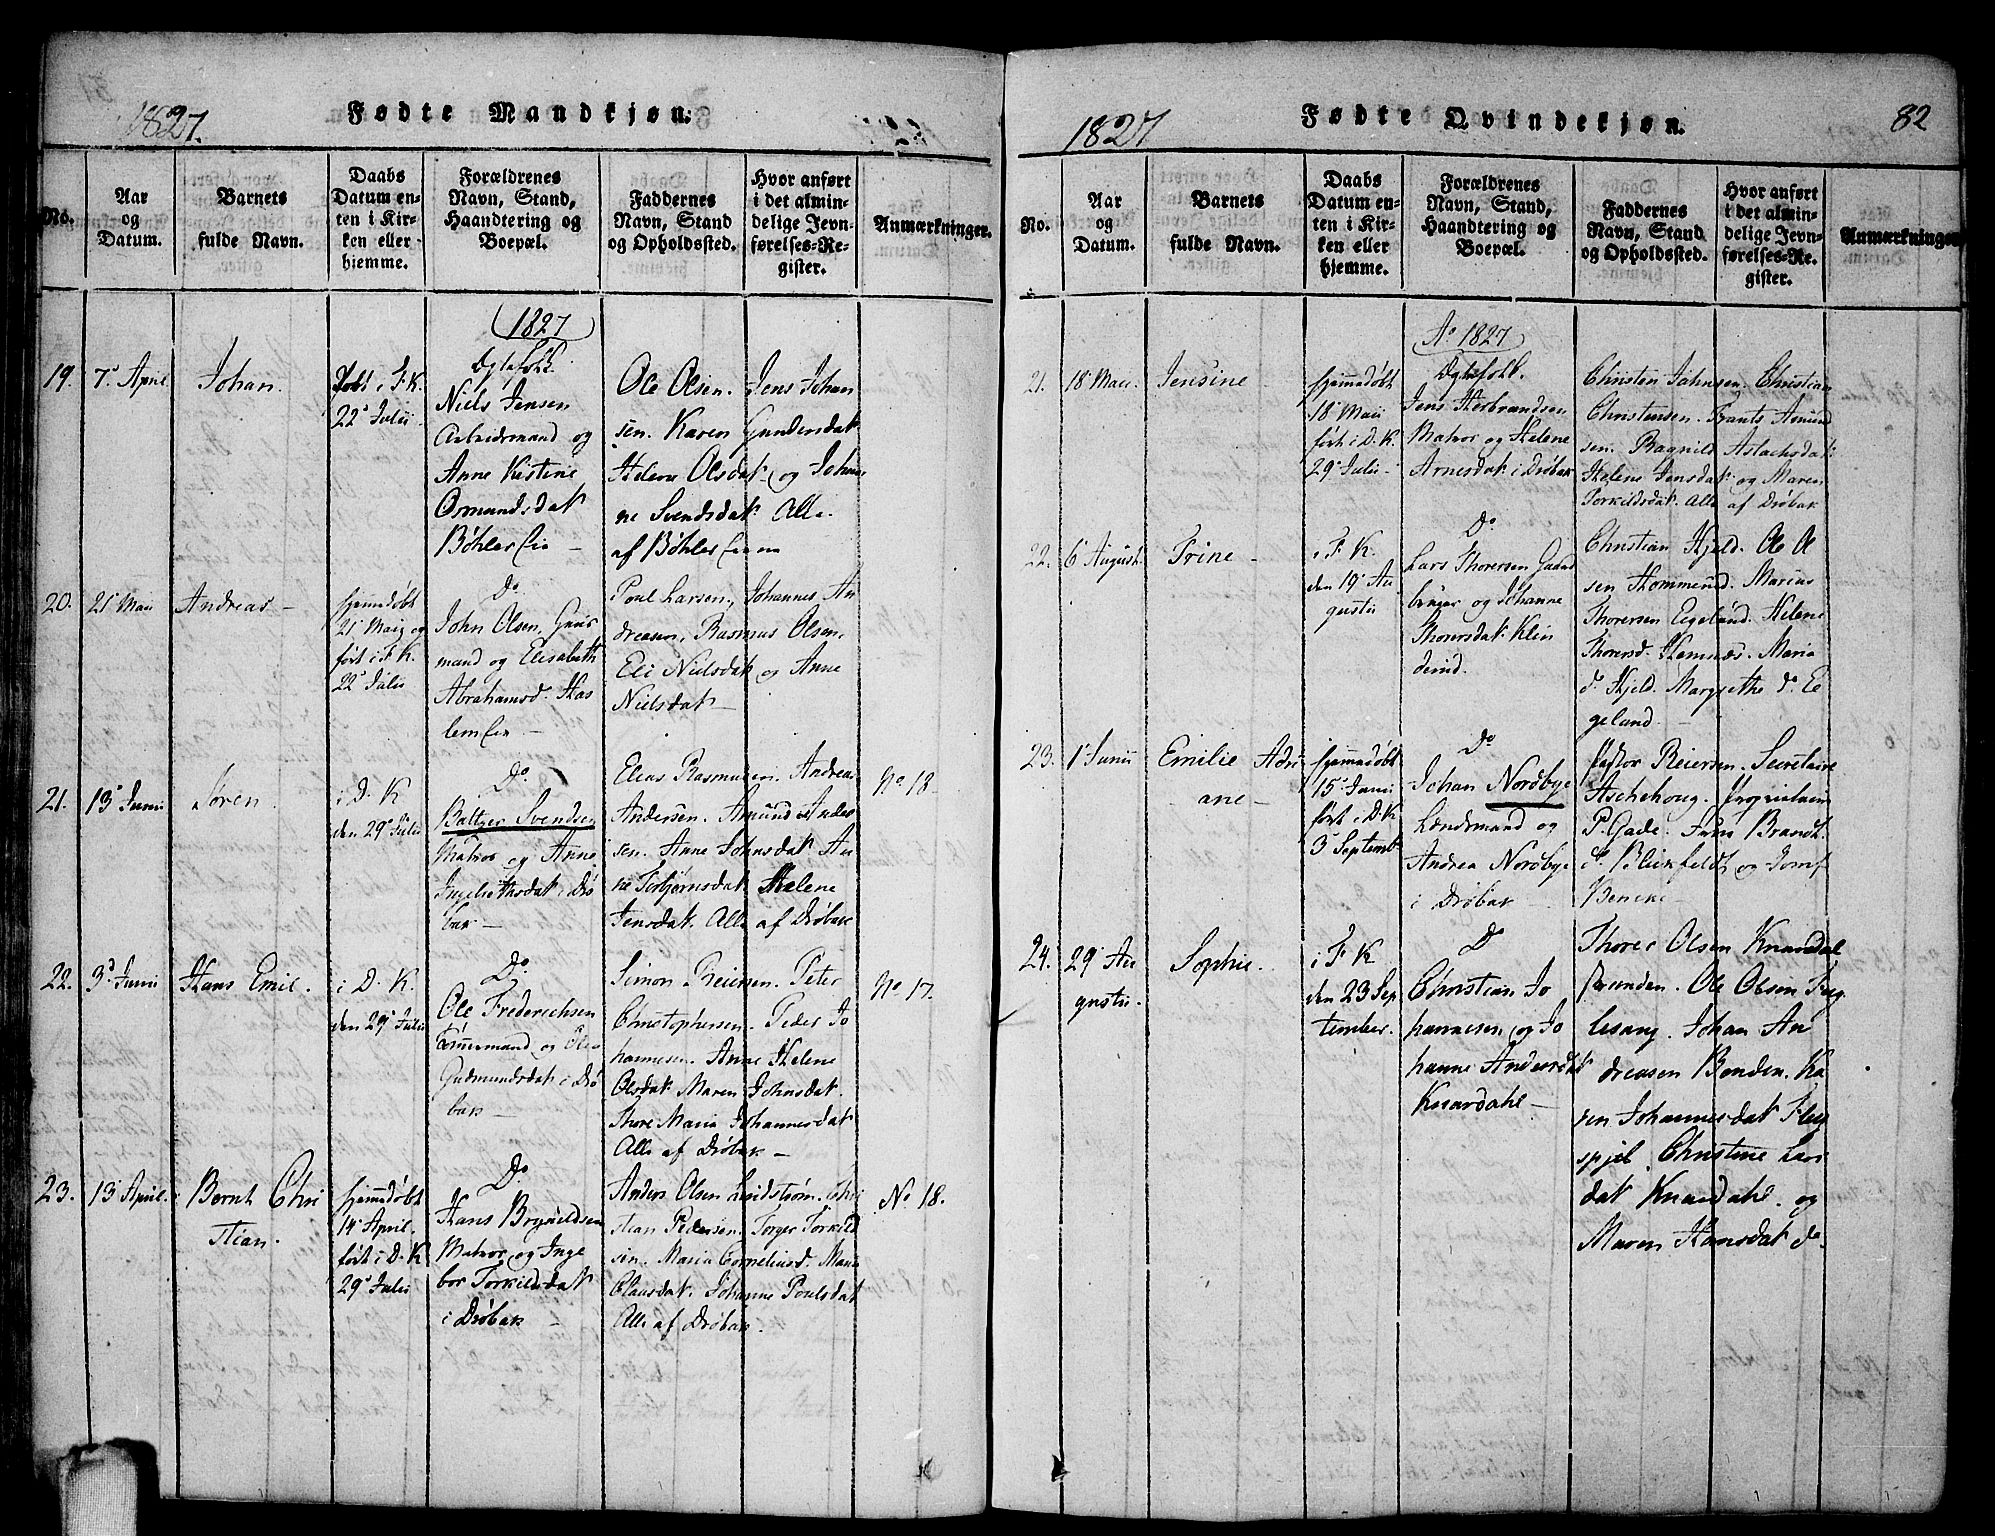 1827. Fødte Mandkjøn.
No.
Aar
og
Datum.
Barnets
fulde Navn.
Daabs
Datum en-
ten i Kir-
ken eller
hjemme.
Forældrenes
Navn, Stand,
Haandtering og
Boepæl.
Faddernes
Navn, Stand
og Opholdssted.
Hvor anført
i det almin-
delige Jevn-
førelses-Re-
gister.
Anmærkninger.
1827
19. 7de April. Johan.
Døbt i F. K.
22de Julii
Ægtefolk.
Niels Jensen
Arbeidsmand og
Anne Kistine
Osmundsdatr
Bøhler Eie —
Ole Olsen. Jens Johan
sen. Karen Gundersdatr
Helene Olsdatr og Johan
ne Svendsdatr Alle
af Bøhler Eierne
20. 21de Maii Andreas —
hjemmedøbt
21de Maii og
ført i F. K.
22de Julii
Do
John Olsen. Huus
mand og Elisabeth
Abrahamsd. Has
lem Eie —
Poul Larsen, Johannes An
dreasen, Rasmus Olsen,
Eli Nielsdatr og Anne
Nielsdatr —
21. 13de Junii Søren.
i D. K
den 29de Julii
Do.
Baltzer Svendsen
Matros og Anne
Ingebrethsdatr i Drø
bak —
Elias Rasmussen. Andreas
Andersen. Amund Ander
sen. Anne Johnsdatr An
ne Torbjørnsdatr Helene
Jensdatr. Alle af Drøbak
No 18
22. 3de Junii Hans Emil.
i D. K.
den 29de Julii
Do.
Ole Frederichsen
Tømmermand og
Gudmundsdatr i Drø
bak —
Simon Reiersen. Peter
Christophersen. Peder Jo
hannesen. Anne Helene
Olsdatr Maren Johnsdatr.
Thore Maria Johannesdatr
Alle af Drøbak —
No 17.
23. 13de April. Bernt Chri
stian.
hjemmedøbt
14de April.
ført i D. K
29de Julii
Do.
Hans Brynildsen
Matros og Inge
bor Torkildsdatr
i Drøbak —
Anders Olsen Lindstrøm. Chri
stian Pedersen. Torger Torkild
sen. Maria Corneliusd. Maria
Clausdatr. Johanne Poulsdatr
Alle af Drøbak.
No 18.
1827 Fødte Qvindekjøn. 82
No.
Aar
og
Datum.
Barnets
fulde Navn.
Daabs
Datum en-
ten i Kir-
ken eller
hjemme.
Forældrenes
Navn, Stand,
Haandtering og
Boepæl.
Faddernes
Navn, Stand
og Opholdssted.
Hvor anført
i det almin-
delige Jevn-
førelses-Re-
gister.
Anmærkninger
Ao 1827
21. 18de Maii. Jensine
hjemmedøbt
18de Maii
ført i D. K.
29de Julii
Ægtefolk.
Jens Herbrandsen
Matros og Helene
Arnesdatr i Drøbak
Christen Johnsen. Christian
Christensen. Frants Amund
sen. Ragnild Aslachsdatr
Helene Jensdatr og Maren
Torkildsdatr. Alle af Drøbak
22. 6te August Trine —
i F. K.
den 19de Au
gusti
Do
Lars Thorersen Gaard
bruger og Johanne
Thorersdatr Klin
derud.
Christian Hjeld. Ole Ol
sen Hommerud. Marius
Thorersen Eigeland. Helene
Thorersd. Hemnæs. Maria
do Hjeld. Margrethe do Ee
geland. —
23. 1ste Junii Emilie Adri
ane —
hjemmedøbt
15de Junii
ført i D. K
3de Septemb.
Do
Johan Nordbye
Lændsmand og
Andrea Nordbye
i Drøbak —
Pastor Reiersen. Secretaire
Aschehoug. Proprietair
P. Gade. Fru Brandt.
do Blixfeldt og Jomf.
Bencke —
24. 29de Au
gusti. Sophie.
i F. K
den 23 Sep
tember.
Do
Christian Jo
hannesen og Jo
hanne Andersdatr
Knardahl —
Thorer Olsen Knardal
Ole Olsen Fug
lesang. Johan An
dreasen Bonden. Ka
ren Johannesdatr
Christine Lars
datr Knardahl. og
Maren Hansdatr do.